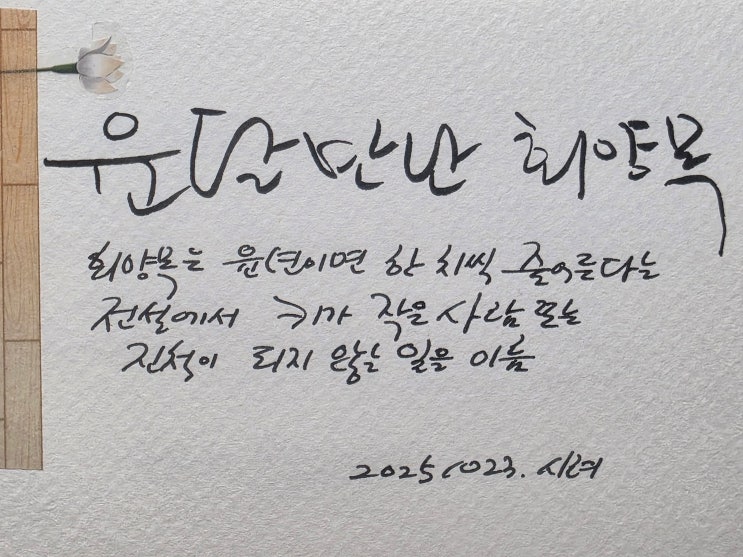 윤달 만난 회양목
회양목는 윤년이면 한 치씩 줄어든다는
전설에서 키가 작은 사람 또는
진척이 되지 않는 일을 이름
20251023. 시녀